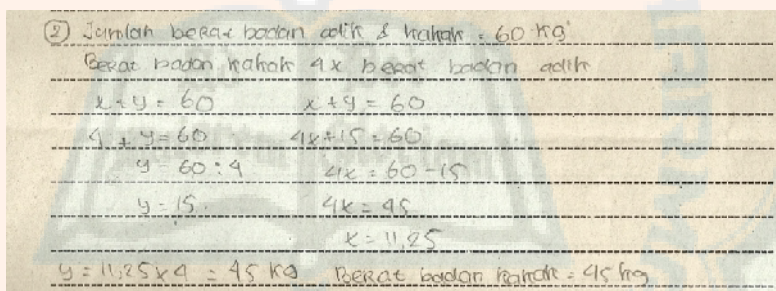 ② Jumlah berat badan adik & kakak = 60 kg
Berat badan kakak 4x berat badan adik
x + y = 60 x + y = 60
4 + y = 60 4x + 15 = 60
y = 60 : 4 4x = 60 - 15
y = 15. 4x = 45
x = 11,25
y = 11,25 x 4 = 45 kg Berat badan kakak = 45 kg